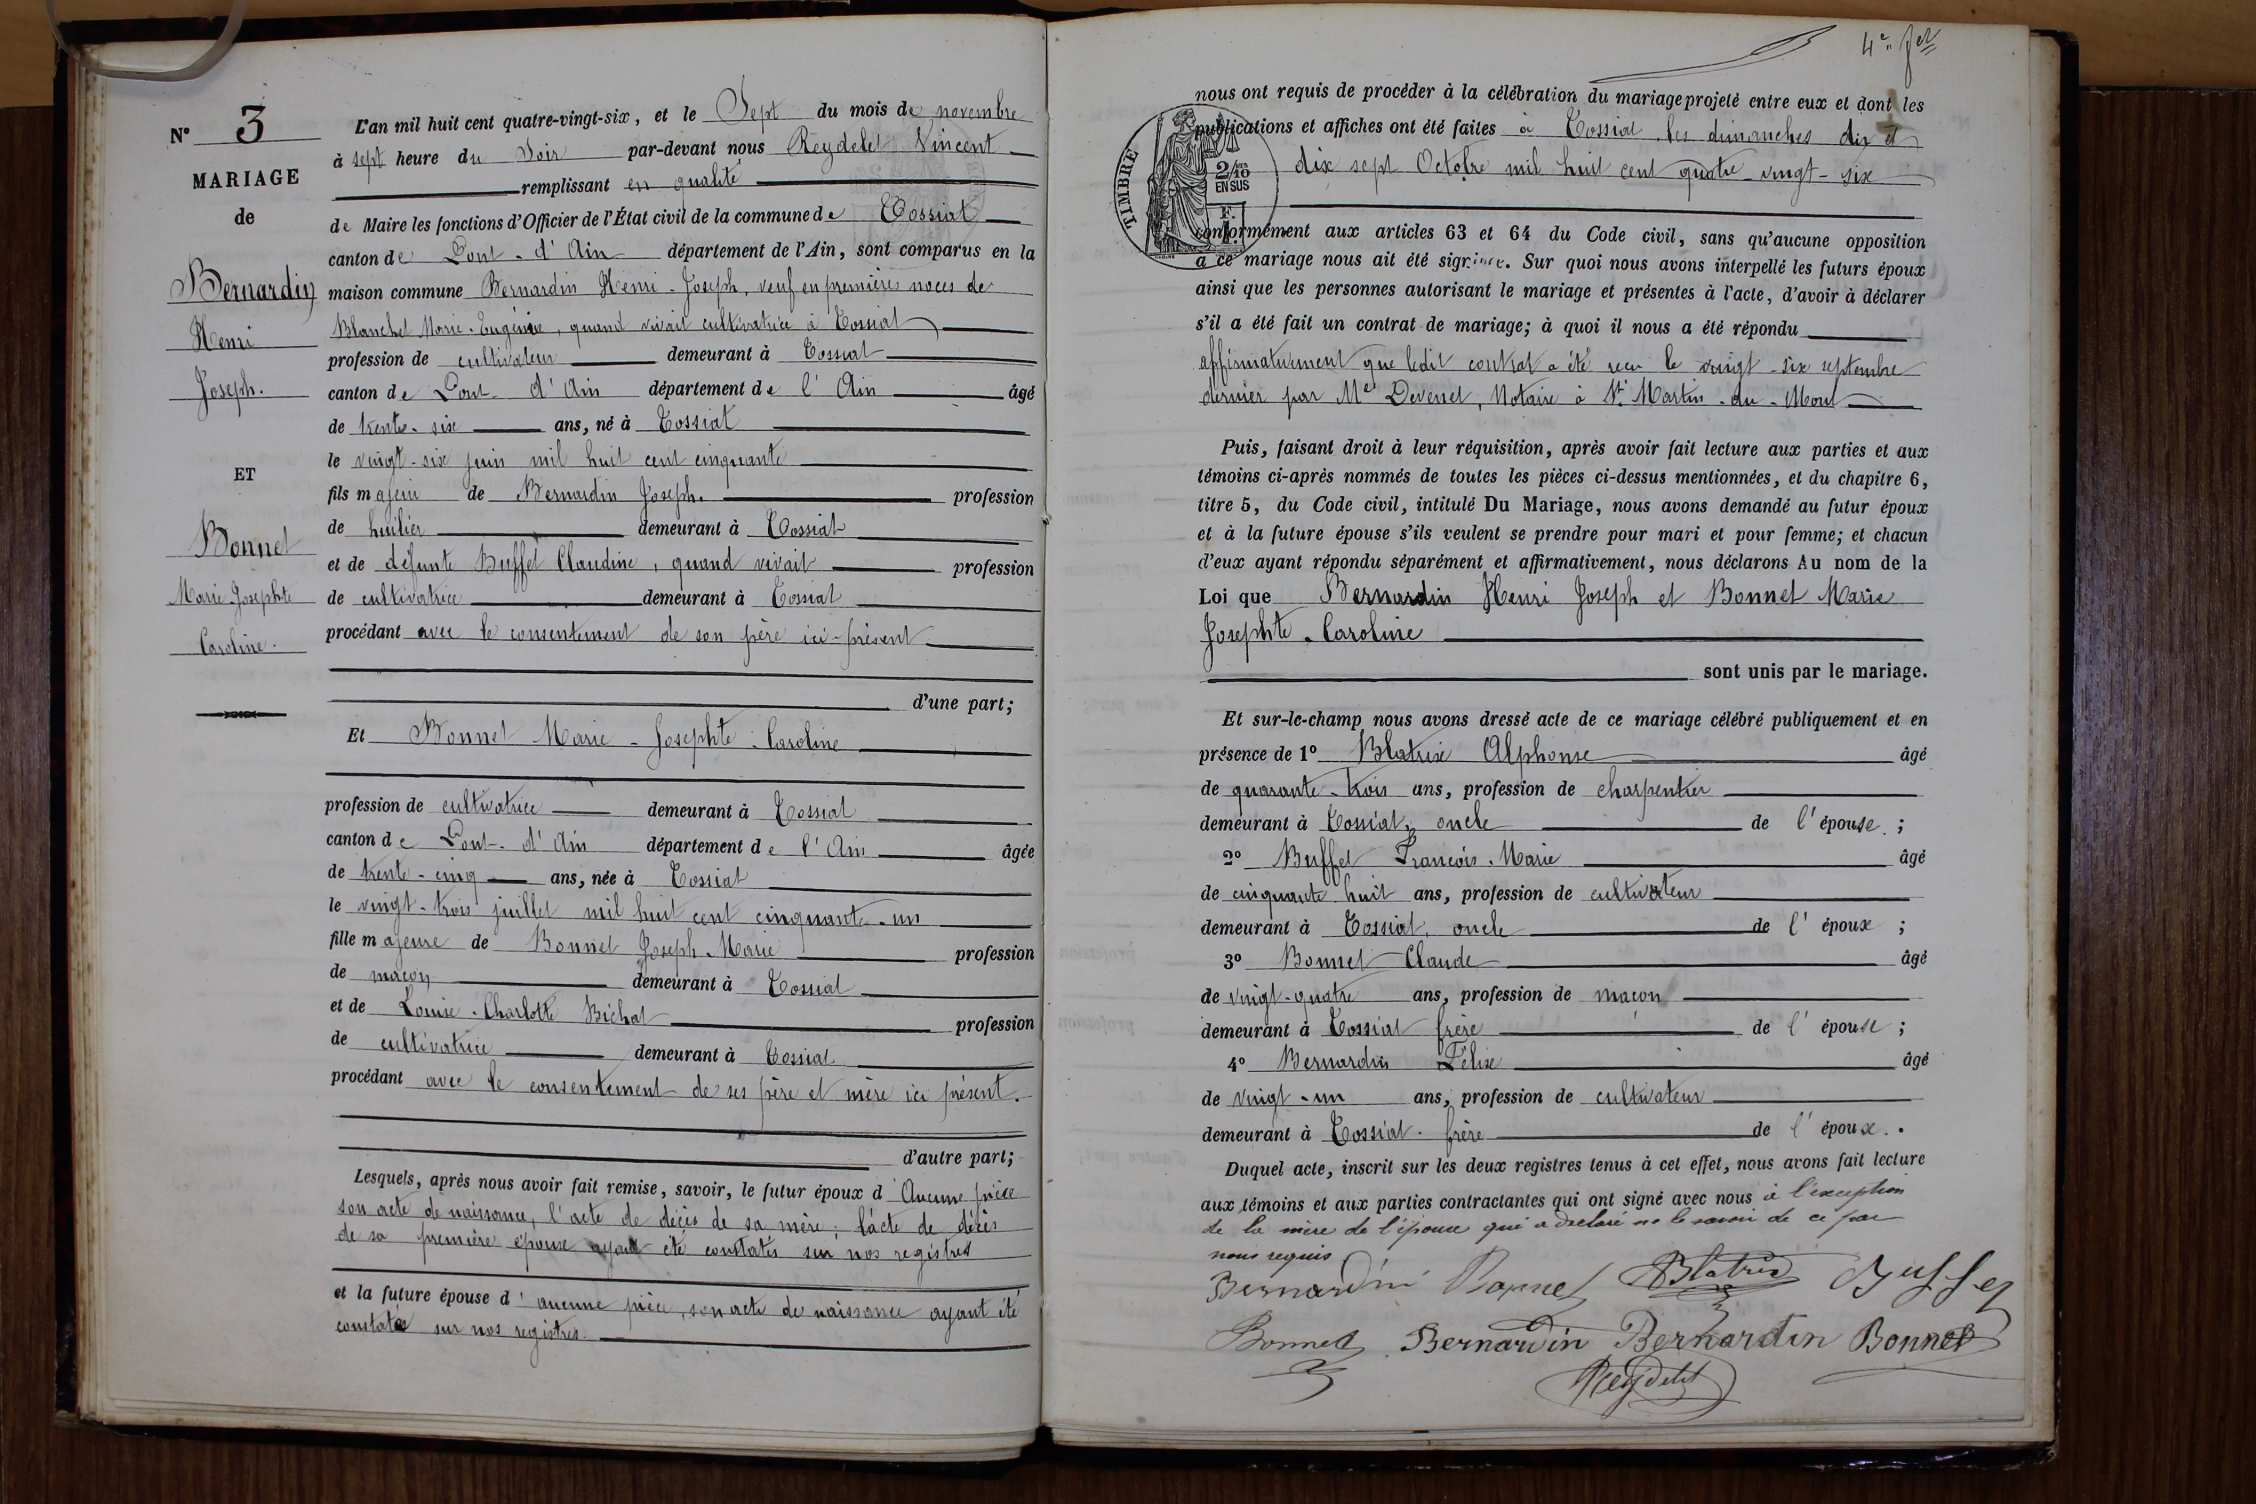 N° 3
MARIAGE
de
Bernardin
Henri
Joseph.
ET
Bonnet
Marie Josephte
Caroline.
L'an mil huit cent quatre-vingt-six, et le Sept du mois de novembre
à sept heure du Soir par-devant nous Reydelet Vincent
remplissant en qualité
de Maire les fonctions d'Officier de l'État civil de la commune de Tossiat
canton de Pont-d'Ain département de l'Ain, sont comparus en la
maison commune Bernardin Henri-Joseph, veuf en premières noces de
Blanchet Marie-Eugénie, quand vivait cultivatrice à Tossiat
profession de cultivateur demeurant à Tossiat
canton de Pont-d'Ain département de l'Ain âgé
de trente-six ans, né à Tossiat
le vingt-six juin mil huit cent cinquante
fils majeur de Bernardin Joseph. profession
de huilier demeurant à Tossiat
et de défunte Buffet Claudine, quand vivait profession
de cultivatrice demeurant à Tossiat
procédant avec le consentement de son père ici-présent
d'une part;
Et Bonnet Marie-Josephte-Caroline
profession de cultivatrice demeurant à Tossiat
canton de Pont-d'Ain département de l'Ain âgée
de trente-cinq ans, née à Tossiat
le vingt-trois juillet mil huit cent cinquante-un
fille majeure de Bonnet Joseph-Marie profession
de maçon demeurant à Tossiat
et de Louise-Charlotte Bichat profession
de cultivatrice demeurant à Tossiat
procédant avec le consentement de ses père et mère ici présent.
d'autre part;
Lesquels, après nous avoir fait remise, savoir, le futur époux d'Aucune pièce
son acte de naissance, l'acte de décès de sa mère; l'acte de décès
de sa première épouse ayant été constatés sur nos registres
et la future épouse d'aucune pièce, son acte de naissance ayant été
constatée sur nos registres.
4e fet
nous ont requis de procéder à la célébration du mariage projeté entre eux et dont les
publications et affiches ont été faites à Tossiat les dimanches dix et
dix sept Octobre mil huit cent quatre-vingt-six
TIMBRE
2/10
EN SUS
F.
conformément aux articles 63 et 64 du Code civil, sans qu'aucune opposition
à ce mariage nous ait été signifiée. Sur quoi nous avons interpellé les futurs époux
ainsi que les personnes autorisant le mariage et présentes à l'acte, d'avoir à déclarer
s'il a été fait un contrat de mariage; à quoi il nous a été répondu
affirmativement que ledit contrat a été reçu le vingt-six septembre
dernier par Me Devenet, Notaire à St Martin-du-Mont
Puis, faisant droit à leur réquisition, après avoir fait lecture aux parties et aux
témoins ci-après nommés de toutes les pièces ci-dessus mentionnées, et du chapitre 6,
titre 5, du Code civil, intitulé Du Mariage, nous avons demandé au futur époux
et à la future épouse s'ils veulent se prendre pour mari et pour femme; et chacun
d'eux ayant répondu séparément et affirmativement, nous déclarons Au nom de la
Loi que Bernardin Henri Joseph et Bonnet Marie
Josephte-Caroline
sont unis par le mariage.
Et sur-le-champ nous avons dressé acte de ce mariage célébré publiquement et en
présence de 1° Blatrix Alphonse âgé
de quarante-trois ans, profession de charpentier
demeurant à Tossiat, oncle de l'épouse;
2° Buffet François-Marie âgé
de cinquante huit ans, profession de cultivateur
demeurant à Tossiat, oncle de l'époux;
3° Bonnet Claude âgé
de vingt-quatre ans, profession de maçon
demeurant à Tossiat frère de l'épouse;
4° Bernardin Félix âgé
de vingt-un ans, profession de cultivateur
demeurant à Tossiat. frère de l'époux.
Duquel acte, inscrit sur les deux registres tenus à cet effet, nous avons fait lecture
aux témoins et aux parties contractantes qui ont signé avec nous à l'exception
de la mère de l'épouse qui a déclaré ne le savoir de ce par
nous requis
Bernardin Bonnet Blatrix Buffet
Bonnet Bernardin Bernardin Bonnet
Reydelet